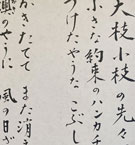 大枝小枝の先々
小さな約束のハンカチ
つけたやうなこぶし
かきたてて また消え
のやうに 風の日ざ